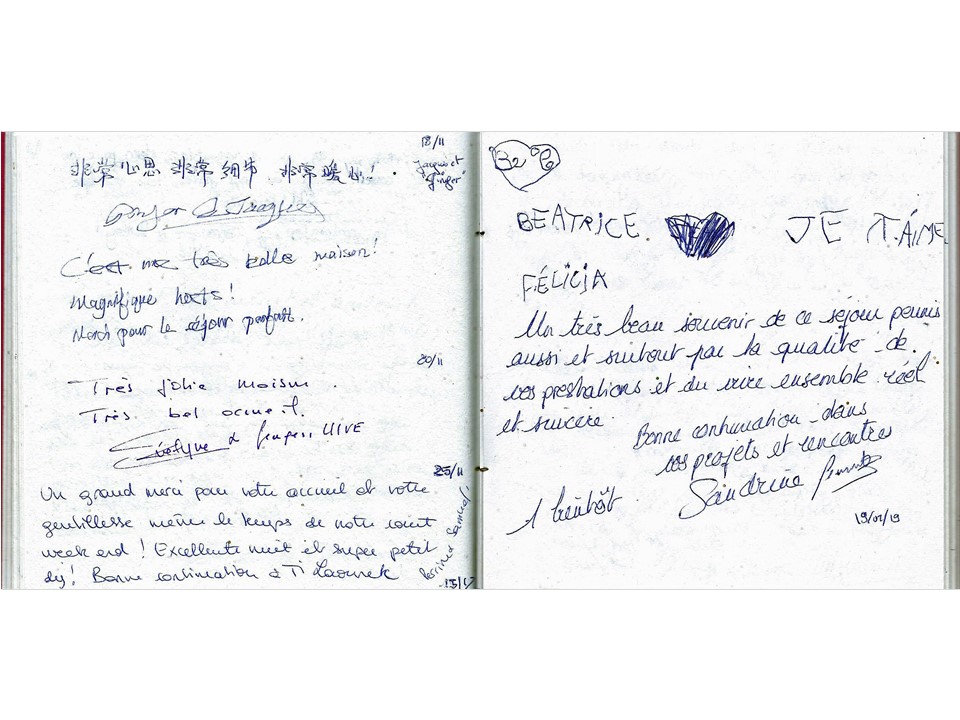 18/11
Jacques et
Ginger
非常心思 非常细节 非常暖心!
Ginger & Jacques
C'est une très belle maison!
Magnifique hosts!
Merci pour le séjour parfait.
20/11
Très jolie maison.
Très bel accueil.
Evelyne &
25/11
Un grand merci pour votre accueil et votre
gentillesse même le temps de notre court
week end! Excellente nuit et super petit
dej! Bonne continuation à Ti Laounek
BEATRICE. JE T'AIME
FÉLICIA
Un très beau souvenir de ce séjour permis
aussi et surtout par la qualité de
vos prestations et du vivre ensemble réel
et sincère
Bonne continuation dans
vos projets et rencontres
Sandrine
A bientôt